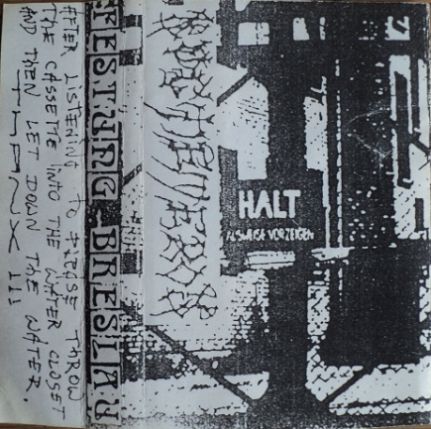 AFTER LISTENING to THROW
THE CASSETTE INTO THE WATER CLOSET
AND THEN LET DOWN THE WATER.
THANX !!!
FESTUNG BRESLAU
HALT
AUSWEISE VORZEIGEN